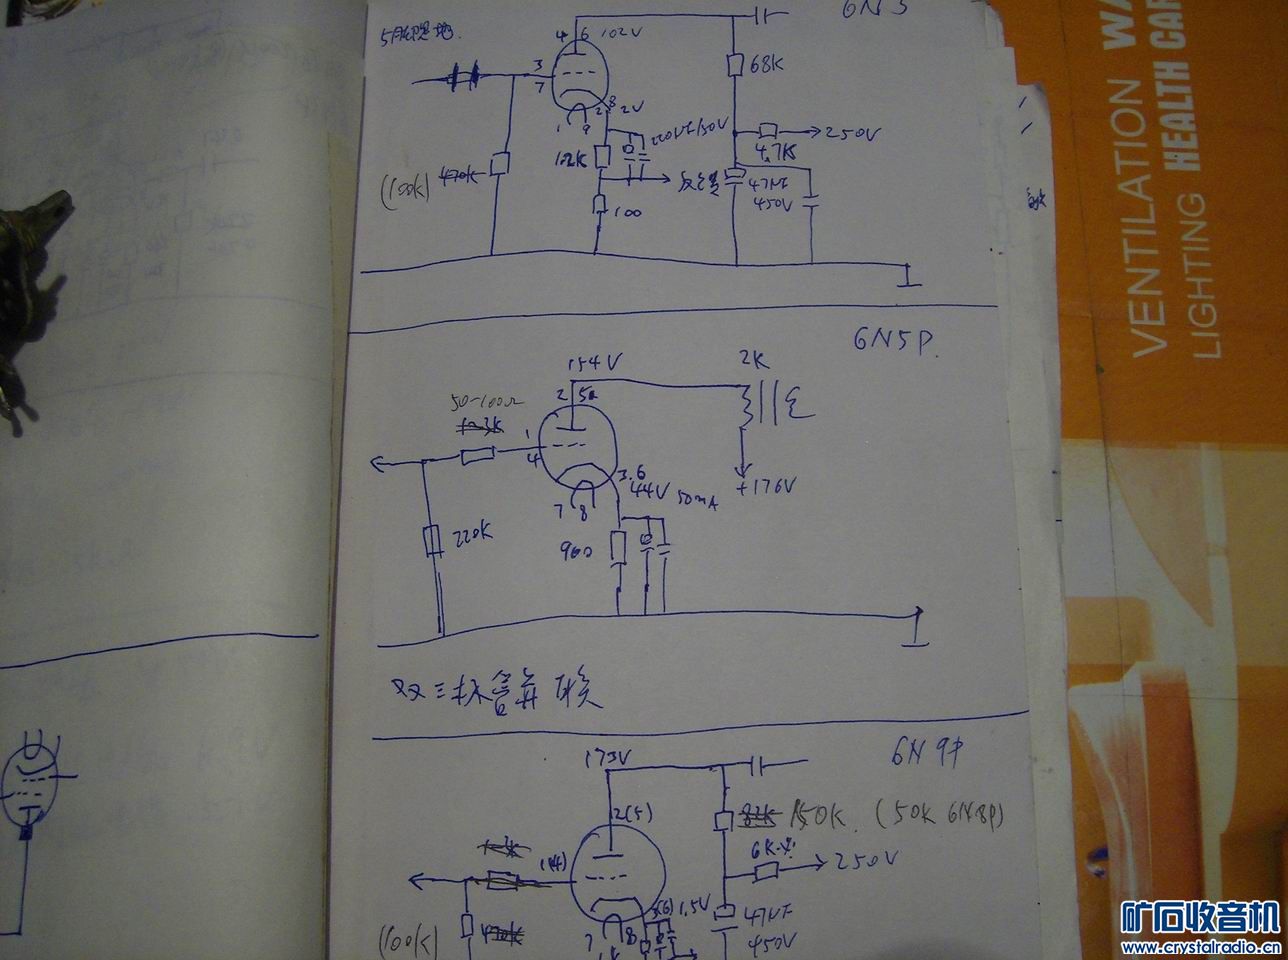 5脚接地.
6N3
4 6 102V
3
7
1 9
2 8 2V
68K
220UF/50V
4.7K
250V
1.2K
(100K) 470K
反馈
47UF
450V
100
6N5P
154V
2K
2 5
50-100Ω
1
4
3.6
44V
50mA
+176V
7 8
220K
960
双三极管并联
6N9P
173V
2(5)
82K 150K. (50K 6N8P)
6K
250V
1(4)
3(6) 1.5V
47UF
450V
7 8
(100K) 470K
VENTILATION WA
LIGHTING HEALTH CAR
矿石收音机
www.crystalradio.cn